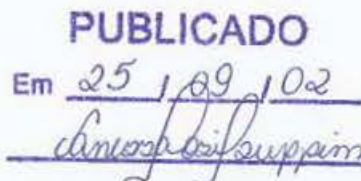 PUBLICADO
Em 25 / 09 / 02